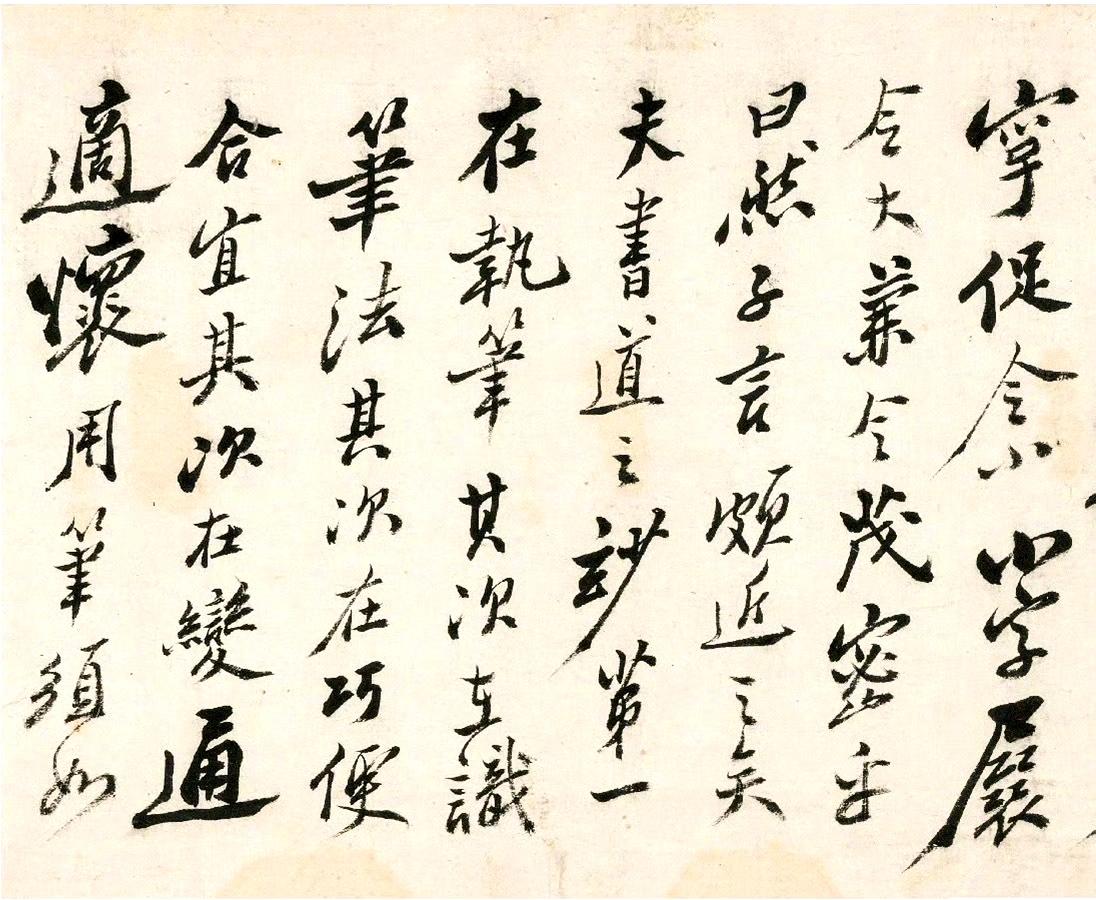 寧促令小小字展
令大兼令茂密乎
曰然子言頗近之矣
夫書道之玅苐一
在執筆其次在識
筆法其次在巧便
合宜其次在變通
適懷用筆須如